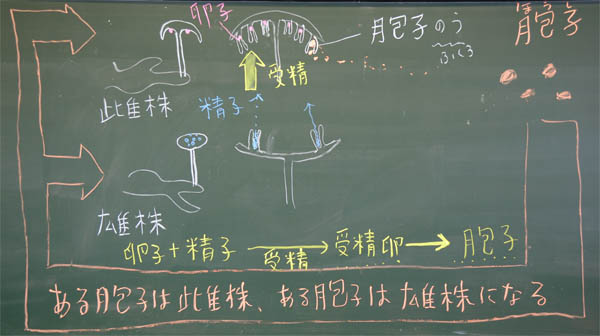 卵子
胞子のう
ふくろ
胞子
受精
雌株
精子
雄株
卵子+精子 受精 受精卵 胞子
ある胞子は雌株、ある胞子は雄株になる